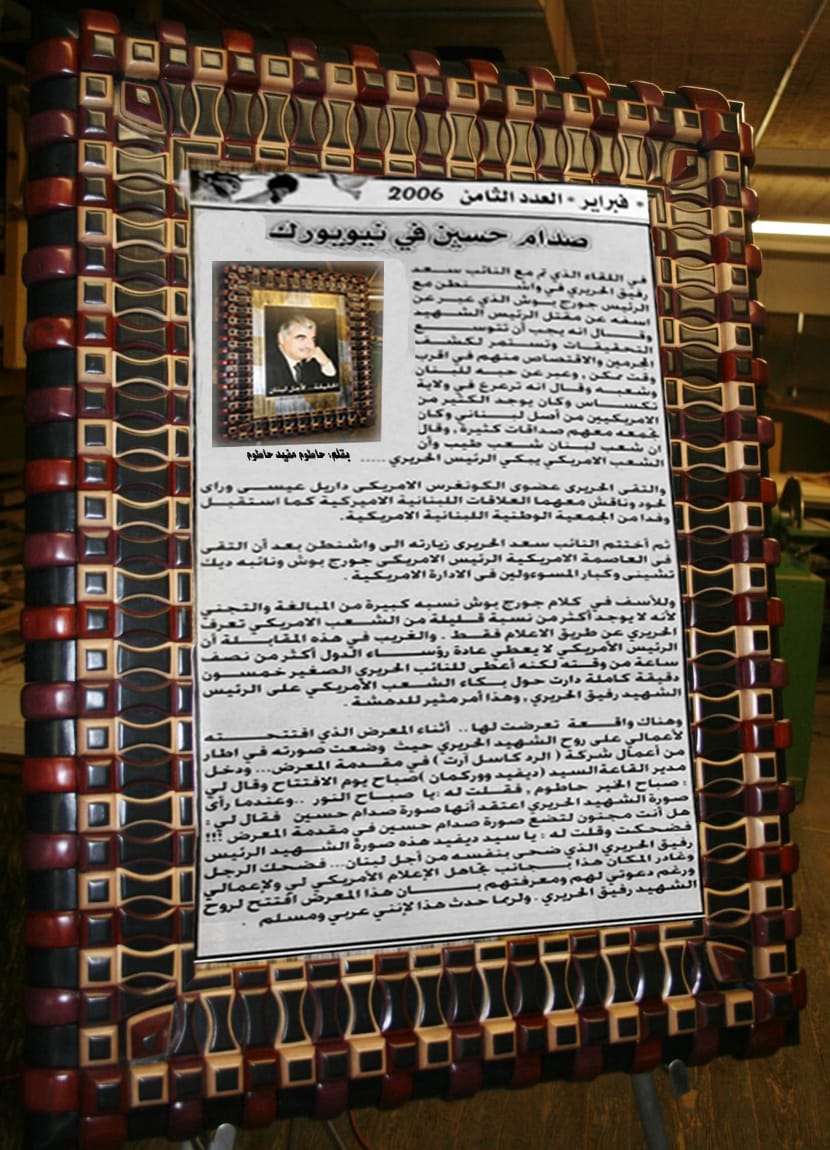 * فبراير * العدد الثامن 2006
صدام حسين في نيويورك
في اللقاء الذي تم مع النائب سعد
رفيق الحريري في واشنطن مع
الرئيس جورج بوش الذي عبر عن
اسفه عن مقتل الرئيس الشهيد
وقال انه يجب أن تتوسع
التحقيقات وتستمر لكشف
المجرمين والاقتصاص منهم في اقرب
وقت ممكن , وعبر عن حبه للبنان
وشعبه وقال انه ترعرع في ولاية
تكساس وكان يوجد الكثير من
الامريكيين من أصل لبناني وكان
تجمعه معهم صداقات كثيرة , وقال
ان شعب لبنان شعب طيب وأن
الشعب الامريكي يبكي الرئيس الحريري .....
الحقيقة.. لأجل لبنان
بقلم: حاطوم مفيد حاطوم
والتقى الحريرى عضوى الكونغرس الامريكى داريل عيسى وراى
لحود وناقش معهما العلاقات اللبنانية الاميركية كما استقبل
وفدا من الجمعية الوطنية اللبنانية الامريكية.
ثم أختتم النائب سعد الحريرى زيارته الى واشنطن بعد أن التقى
فى العاصمة الامريكية الرئيس الامريكى جورج بوش ونائبه ديك
تشينى وكبار المسوءولين فى الادارة الامريكية .
وللأسف في كلام جورج بوش نسبه كبيرة من المبالغة والتجني
لأنه لا يوجد أكثر من نسبة قليلة من الشعب الامريكي تعرف
الحريري عن طريق الاعلام فقط . والغريب في هذه المقابلة أن
الرئيس الأمريكي لا يعطي عادة رؤساء الدول أكثر من نصف
ساعة من وقته لكنه أعطى للنائب الحريري الصغير خمسون
دقيقة كاملة دارت حول بكاء الشعب الأمريكي على الرئيس
الشهيد رفيق الحريري , وهذا أمر مثير للدهشة .
وهناك واقعة تعرضت لها .. أثناء المعرض الذي افتتحته
لأعمالي على روح الشهيد الحريري حيث وضعت صورته في اطار
من أعمال شركة ( الرد كاسل آرت ) في مقدمة المعرض... ودخل
مدير القاعة السيد (ديفيد ووركمان )صباح يوم الافتتاح وقال لي
: صباح الخير حاطوم , فقلت له :يا صباح النور ..وعندما رأى
صورة الشهيد الحريري اعتقد أنها صورة صدام حسين فقال لي :
هل أنت مجنون لتضع صورة صدام حسين في مقدمة المعرض ؟!!
فضحكت وقلت له : يا سيد ديفيد هذه صورة الشهيد الرئيس
رفيق الحريري الذي ضحى بنفسه من أجل لبنان... فضحك الرجل
وغادر المكان هذا بجانب تجاهل الإعلام الأمريكي لي ولإعمالي
ورغم دعوتي لهم ومعرفتهم بان هذا المعرض افتتح لروح
الشهيد رفيق الحريري . ولربما حدث هذا لإنني عربي ومسلم .